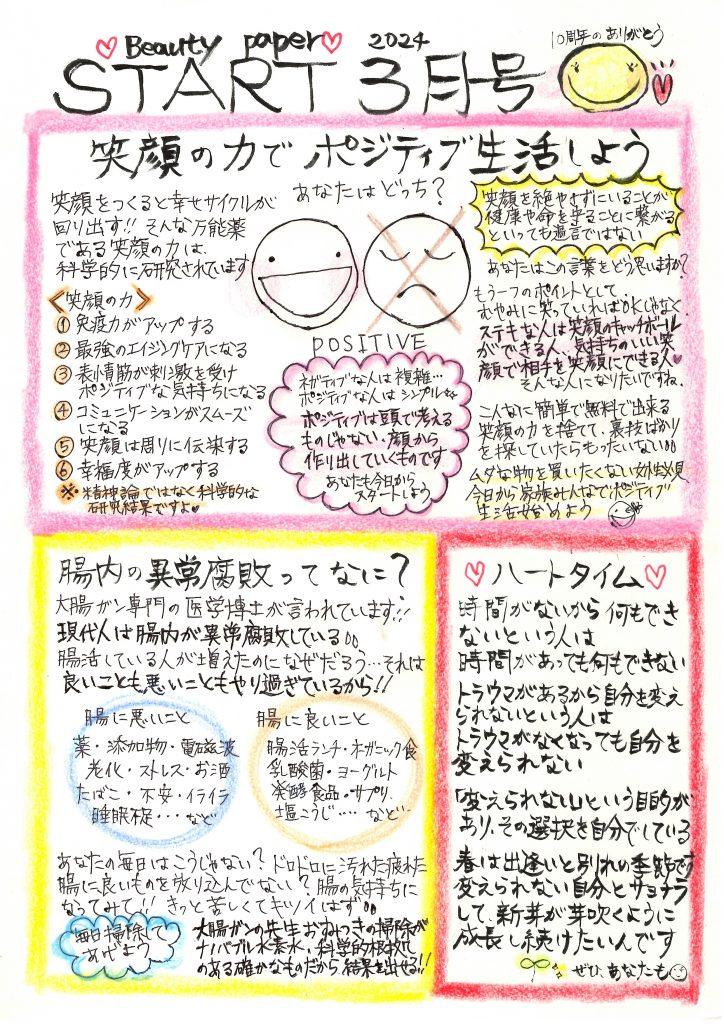 ♡Beauty paper♡ 2024
START 3月号
10周年のありがとう
笑顔の力で ポジティブ生活しよう
笑顔をつくると幸せサイクルが
回り出す!! そんな万能薬
である笑顔の力は、
科学的に研究されています
<笑顔の力>
① 免疫力がアップする
② 最強のエイジングケアになる
③ 表情筋が刺激を受け
ポジティブな気持ちになる
④ コミュニケーションがスムーズ
になる
⑤ 笑顔は周りに伝染する
⑥ 幸福度がアップする
※精神論ではなく科学的な
研究結果ですよ♥
あなたはどっち?
POSITIVE
ネガティブな人は複雑…
ポジティブな人は シンプル
ポジティブは頭で考える
ものじゃない、顔から
作り出していくものです
あなたも今日から
スタートしよう
笑顔を絶やさずにいることが
健康や命を守ることに繋がる
といっても過言ではない
あなたはこの言葉をどう思いますか?
もう一つのポイントとして、
むやみに笑っていればOKじゃなく、
ステキな人は笑顔のキャッチボール
ができる人、気持ちのいい笑
顔で相手を笑顔にできる人♥
そんな人になりたいですね。
こんなに簡単で無料で出来る
笑顔の力を捨てて、裏技ばかり
を探していたらもったいない。。
ムダな物を買いたくない女性必見
今日から家族みんなでポジティブ
生活始めよう
腸内の異常腐敗ってなに?
大腸ガン専門の医学博士が言われています!!
現代人は腸内が異常腐敗している。。
腸活している人が増えたのになぜだろう…それは
良いことも悪いこともやり過ぎているから!!
腸に悪いこと
薬・添加物・電磁波
老化・ストレス・お酒
たばこ・不安・イライラ
睡眠不足・・・など
腸に良いこと
腸活ランチ・オーガニック食
乳酸菌・ヨーグルト
発酵食品・サプリ
塩こうじ・・・・など
あなたの毎日はこうじゃない? ドロドロに汚れた疲れた
腸に良いものを放り込んでない? 腸の気持ちに
なってみて!! きっと苦しくてキツイはず。。
毎日掃除して
あげよう
大腸ガンの先生おすみつきの掃除が
ナノバブル水素水、科学的根拠
のある確かなものだから、結果を出せる!!
♡ハートタイム♡
時間がないから何もでき
ないという人は
時間があっても何もできない
トラウマがあるから自分を変え
られないという人は
トラウマがなくなっても自分を
変えられない
「変えられない」という目的が
あり、その選択を自分でしている
春は出逢いと別れの季節です
変えられない自分とサヨナラ
して、新芽が芽吹くように
成長し続けたいんです
ぜひ、あなたも